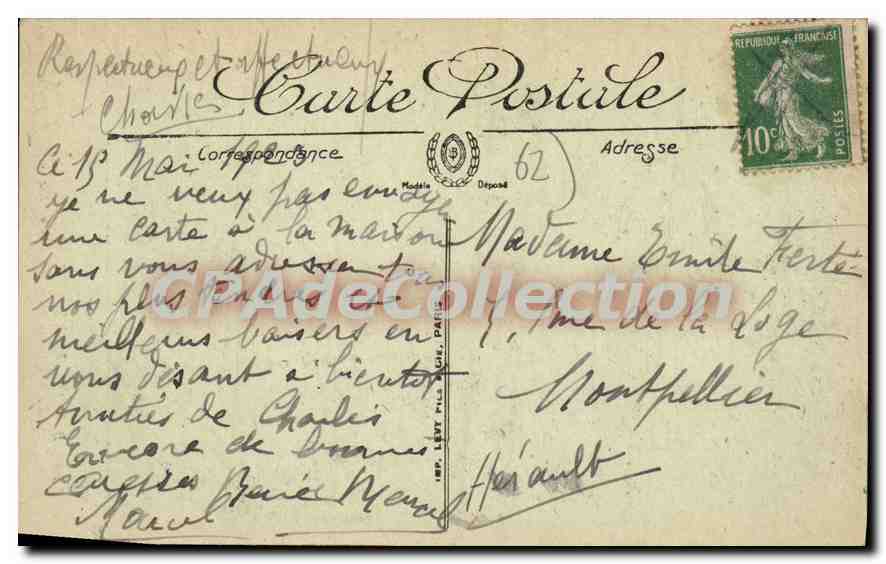 Respectueux et affectueux
Charles
Carte Postale
Correspondance
Adresse
Modèle Déposé
62
REPUBLIQUE FRANÇAISE
10c
POSTES
Ce 15 Mai
je ne veux pas envoyer
une carte à la maison
sans vous adresser tous
nos plus tendres et
meilleurs baisers en
vous disant à bientôt
Amitiés de Charles
Encore de bonnes
caresses Renée Marcel
Marcel
IMP. LEVY FILS & CIE, PARIS
Madame Emile Ferté
5, Rue de la Loge
Montpellier
Hérault
CPAdeCollection.com